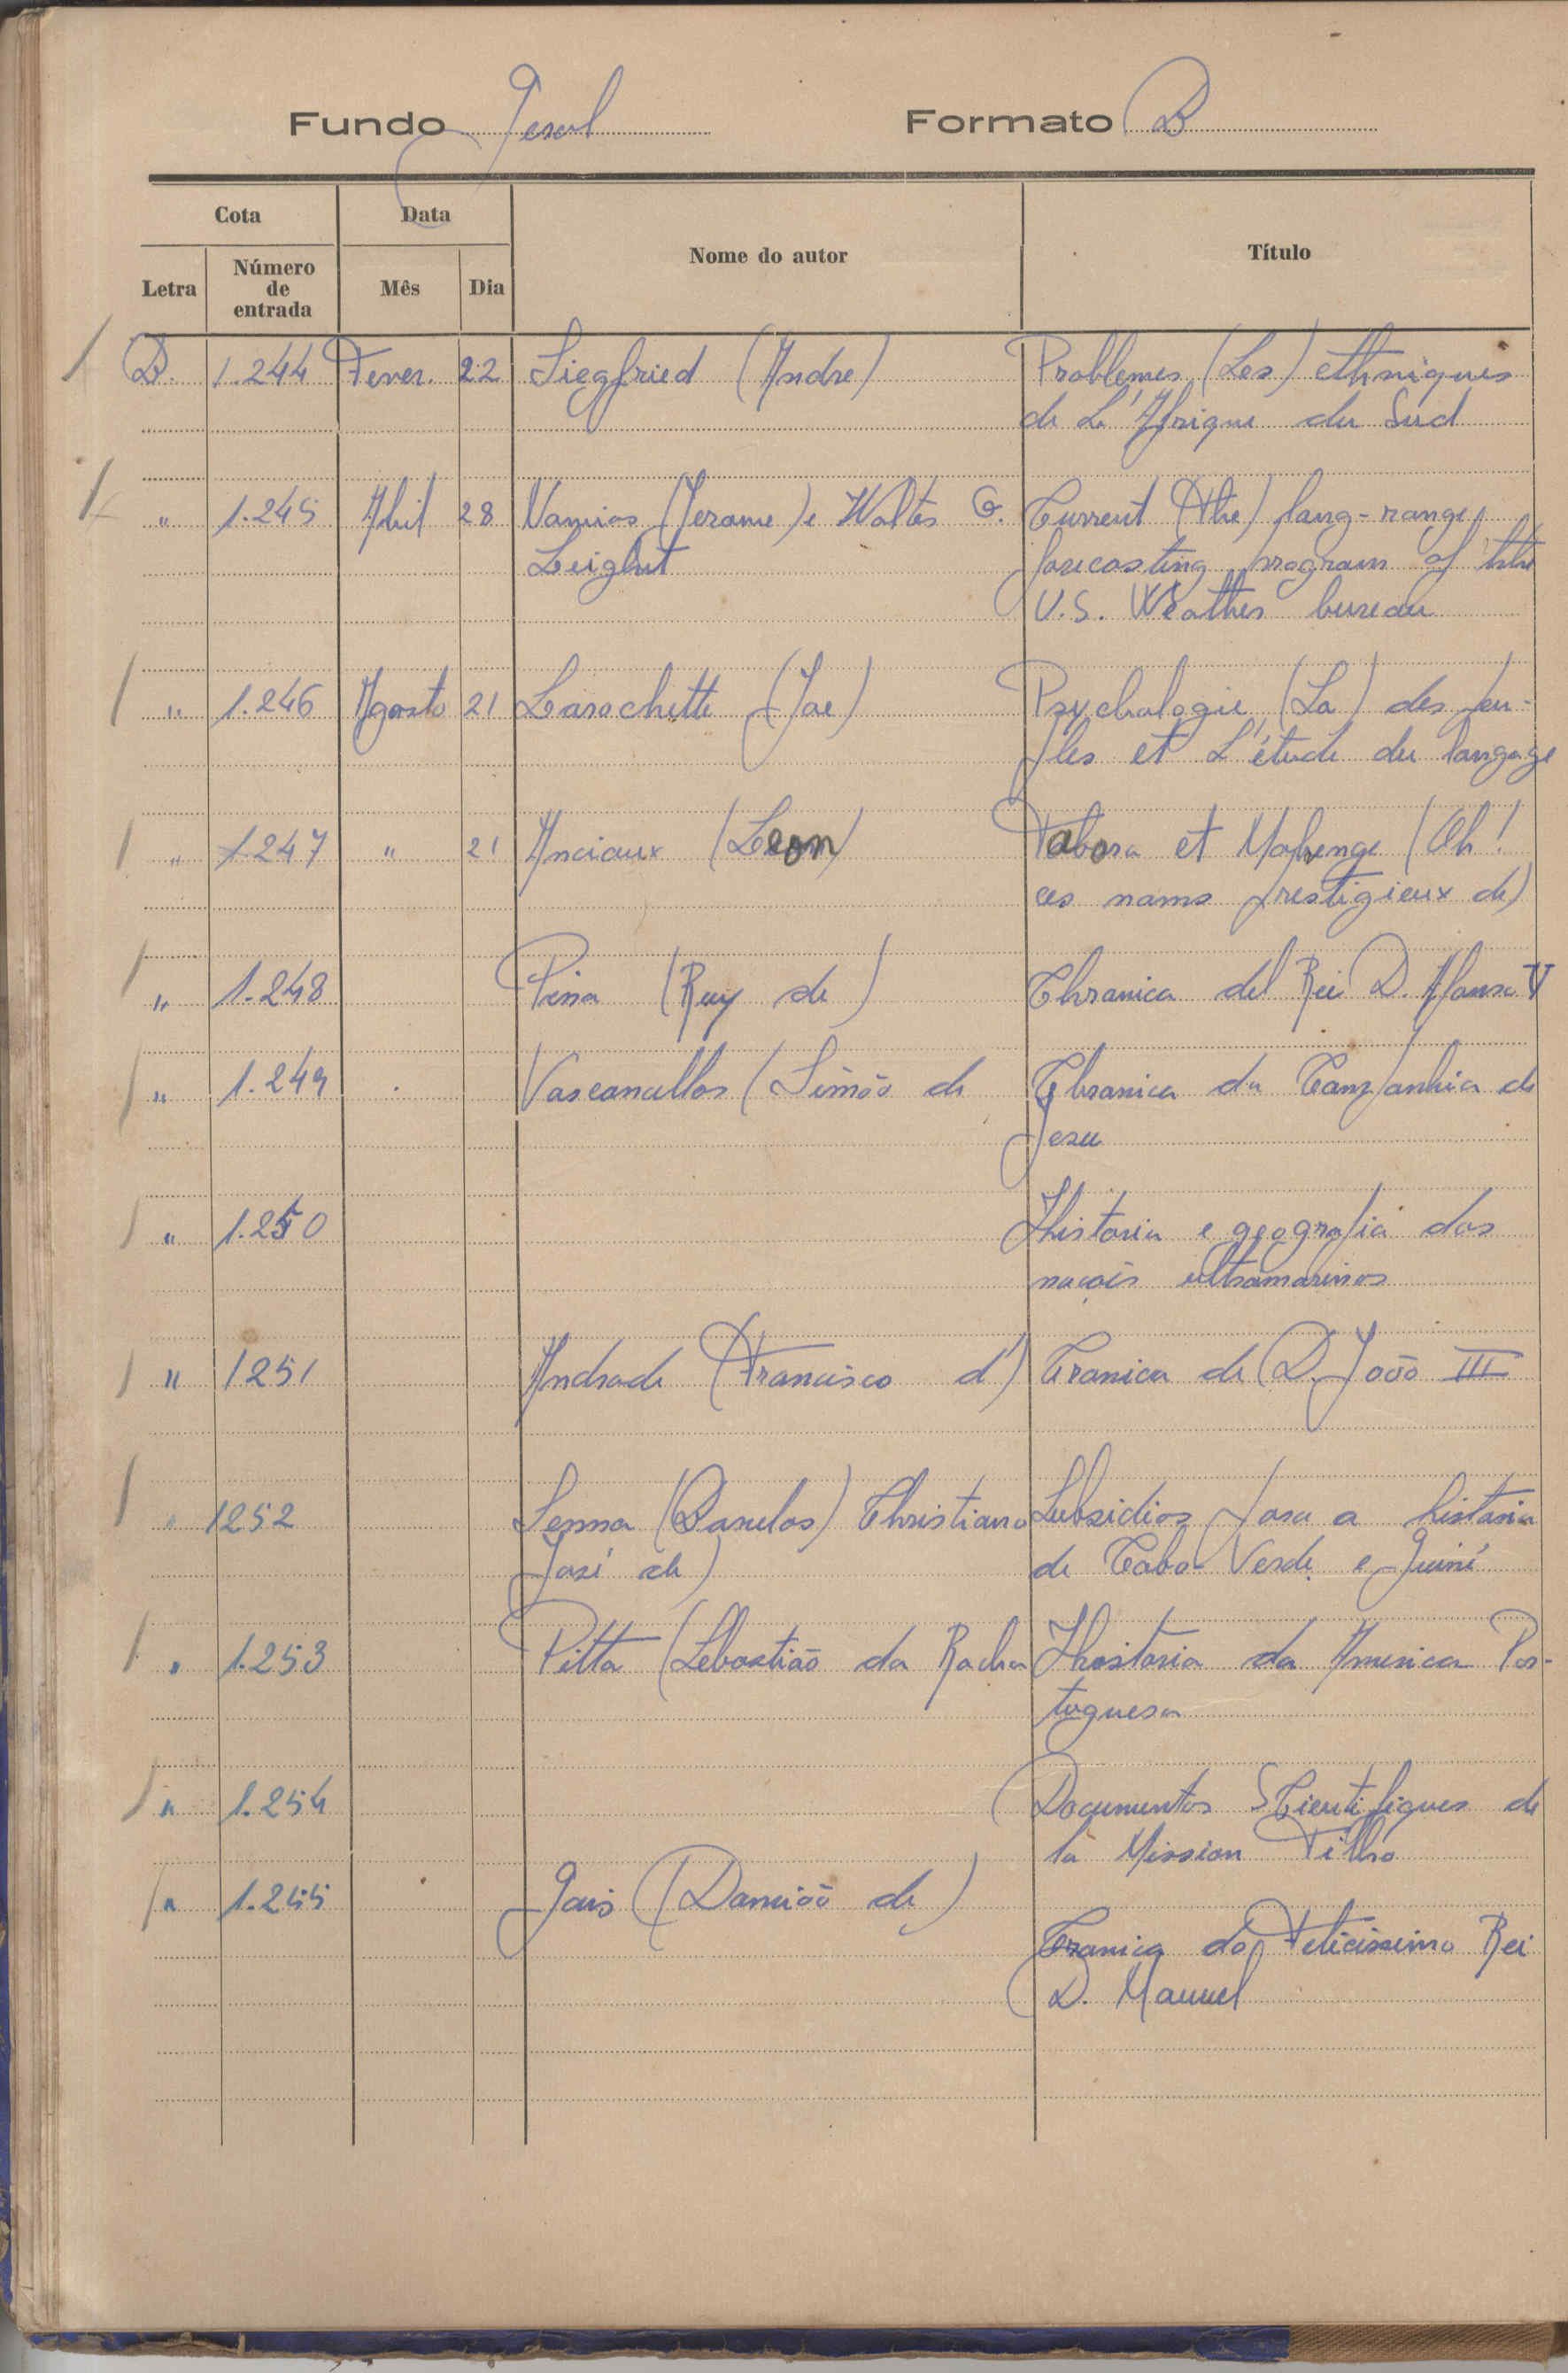 Fundo Geral Formato B
Cota Data Nome do autor Título
Letra Número de entrada Mês Dia
B. 1.244 Fever. 22 Siegfried (Andre) Problemes (Les) ethniques
de L'Afrique du Sud
" 1.245 Abril 28 Namias (Jerome) e Walter G. Current (the) long-range
Leight forecasting program of the
U.S. Weather bureau
" 1.246 Agosto 21 Larochette (Joe) Psychologie (La) des peu-
ples et L'étude du langage
" 1247 " 21 Anciaux (Leon) Tabora et Mahenge (Oh!
ces noms prestigieux de)
" 1.248 Pina (Ruy de) Chronica del Rei D. Afonso V
" 1.249 Vasconcellos (Simão de Chronica da Companhia de
Jesu
" 1.250 Historia e geografia das
nações ultramarinos
" 1251 Andrade (Francisco d') Cronica de D. João III
" 1252 Senna (Barcelos) Christiano Subsidios para a historia
José de) de Cabo-Verde e Guiné
" 1.253 Pitta (Sebastião da Rocha Historia da America Por-
tuguesa
" 1.254 Documentos Scientifiques de
la Mission Tilho
" 1.255 Gois (Damião de)
Cronica do Felicissimo Rei
D. Manuel